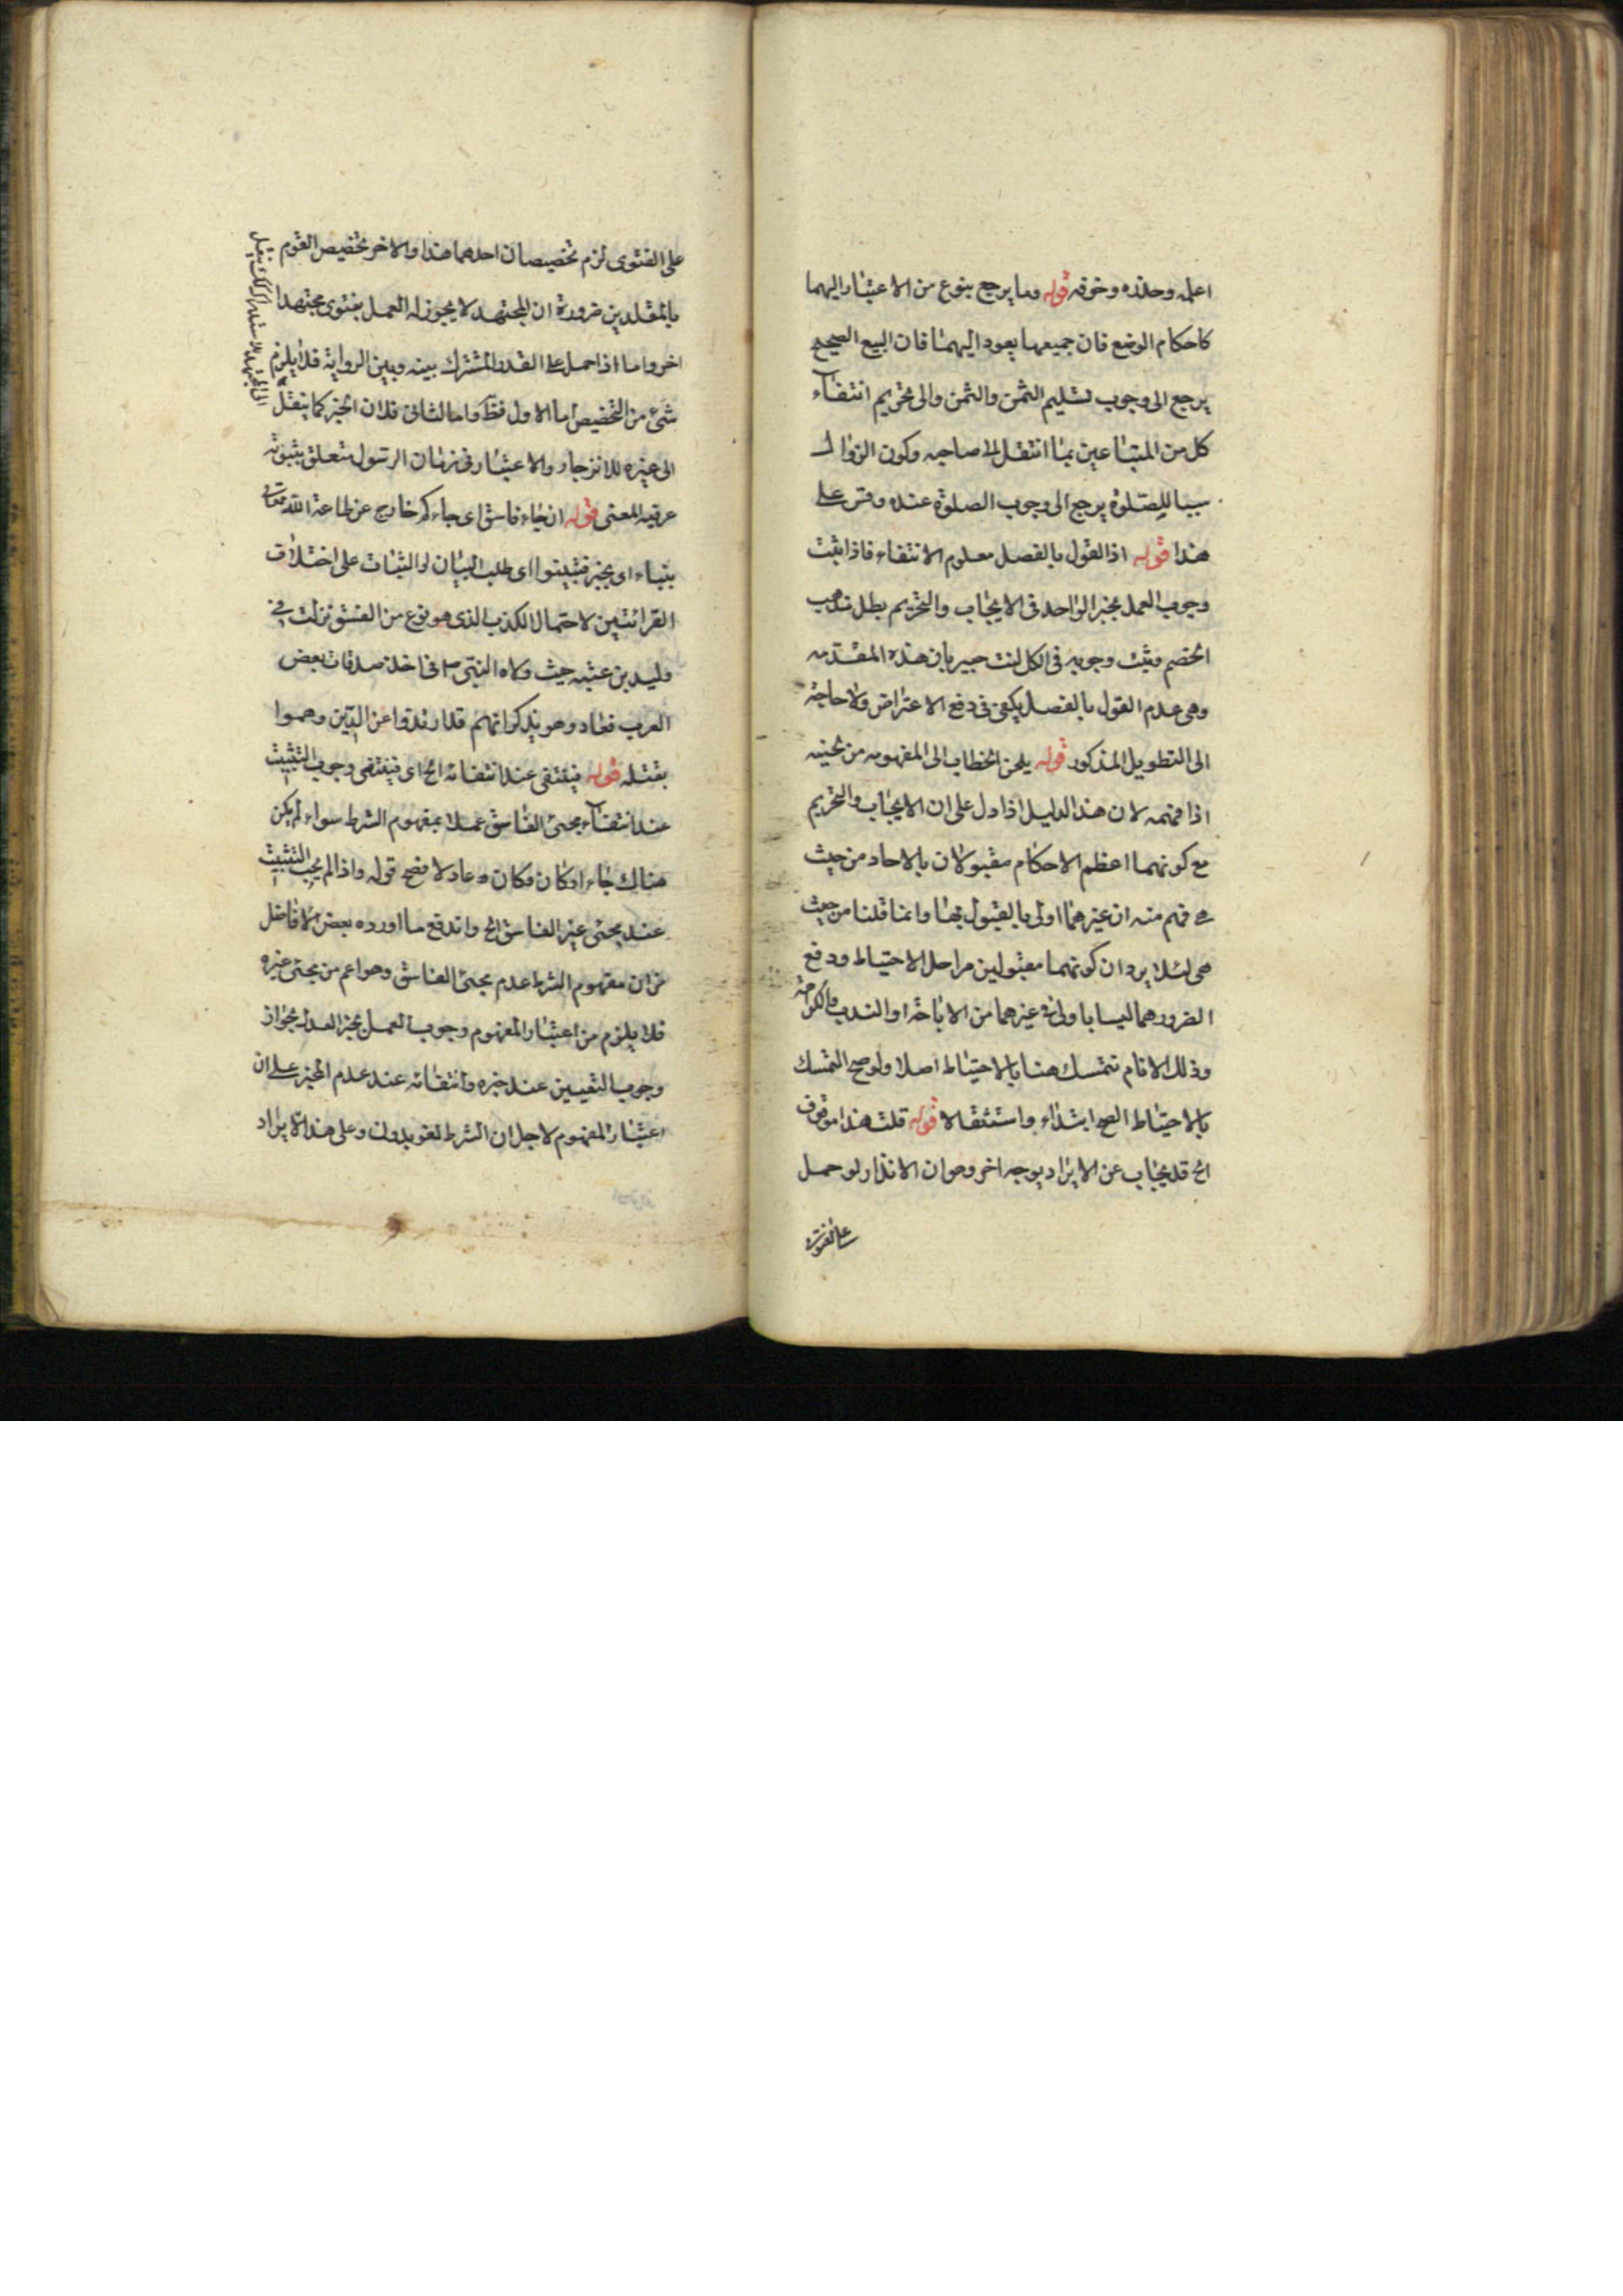 اعلمه وحذره وخوفه قوله وما يرجع بنوع من الاعتبار اليهما
كاحكام الوضع فان جميعها يعود اليهما فان البيع الصحيح
يرجع الى وجوب تسليم الثمن والثمن والى تحريم انتفاء
كل من المتبايعين بما انتقل الى صاحبه وكون الزوال
سببا للصلوة يرجع الى وجوب الصلوة عنده وقس على
هذا قوله اذ القول بالفصل معلوم الانتفاء فاذا ثبت
وجوب العمل بخبر الواحد فى الايجاب والتحريم بطل مذهب
الخصم وثبت وجوبه فى الكل لنت خبير بان هذه المقدمه
وهى عدم القول بالفصل يكفى فى دفع الاعتراض ولا حاجة
الى التطويل المذكور قوله بلحن الخطاب الى المفهومه من لحنه
اذا فهمه لان هذا الدليل اذا دل على ان الايجاب والتحريم
مع كونهما اعظم الاحكام مقبولان بالاحاد من حيث
هى فهم منه ان غيرهما اولى بالقبول بها وانما قلنا من حيث
هى لئلا يرد ان كونهما مقبولين من اجل الاحتياط ودفع
الضرر وهما ليسا باولى فى غيرهما من الاباحة او الندب والكراهة
وذلك لانا لم نتمسك هنا بالاحتياط اصلا ولو صح التمسك
بالاحتياط الصح ابتداء واستقلالا قوله قلت هذا موقوف
الخ قد يجاب عن الايراد بوجه اخر وهو ان الانذار لو حمل
على الفتوى
على الفتوى لزم تخصيصان احدهما هذا والاخر تخصيص القوم
بالمقلدين ضرورة ان المجتهد لا يجوز له العمل بفتوى مجتهد
اخر واما اذا حمل على القدر المشترك بينه وبين الرواية فلا يلزم
شئ من التخصيص اما الاول فظ واما الثانى فلان الخبر كما ينقل
الى غيره للانزجار والاعتبار وفى زمان الرسول متعلق بثبوته
عرفيه المعنى قوله ان جاء فاسق اى جاءكم خارج عن طاعة الله تعالى
بنباء اى بخبر فتبينوا اى طلب البيان او الثبات على اختلاف
القرائتين لاحتمال الكذب الذى هو نوع من الفسق نزلت فى
وليد بن عتبه حيث ولاه النبى ص فى اخذ صدقات بعض
العرب فعاد وهو يذكر انهم قد ارتدوا عن الدين وهموا
بقتله قوله فينتفى عند انتفائه الخ اى فينتفى وجوب التثبت
عند انتفاء مجئ الفاسق عملا بمفهوم الشرط سواء لم يكن
هناك جاء او كان وكان عادلا فصح قوله واذا لم يجب التثبت
عند مجئ غير الفاسق الخ واندفع ما اورده بعض الافاضل
من ان مفهوم الشرط عدم مجئ الفاسق وهو اعم من مجئ غيره
فلا يلزم من اعتبار المفهوم وجوب العمل بخبر العدل بجواز
وجوب التبين عند خبره وانتفائه عند عدم الخبر على ان
اعتبار المفهوم لاجل ان الشرط لغو بدونه وعلى هذا الايراد